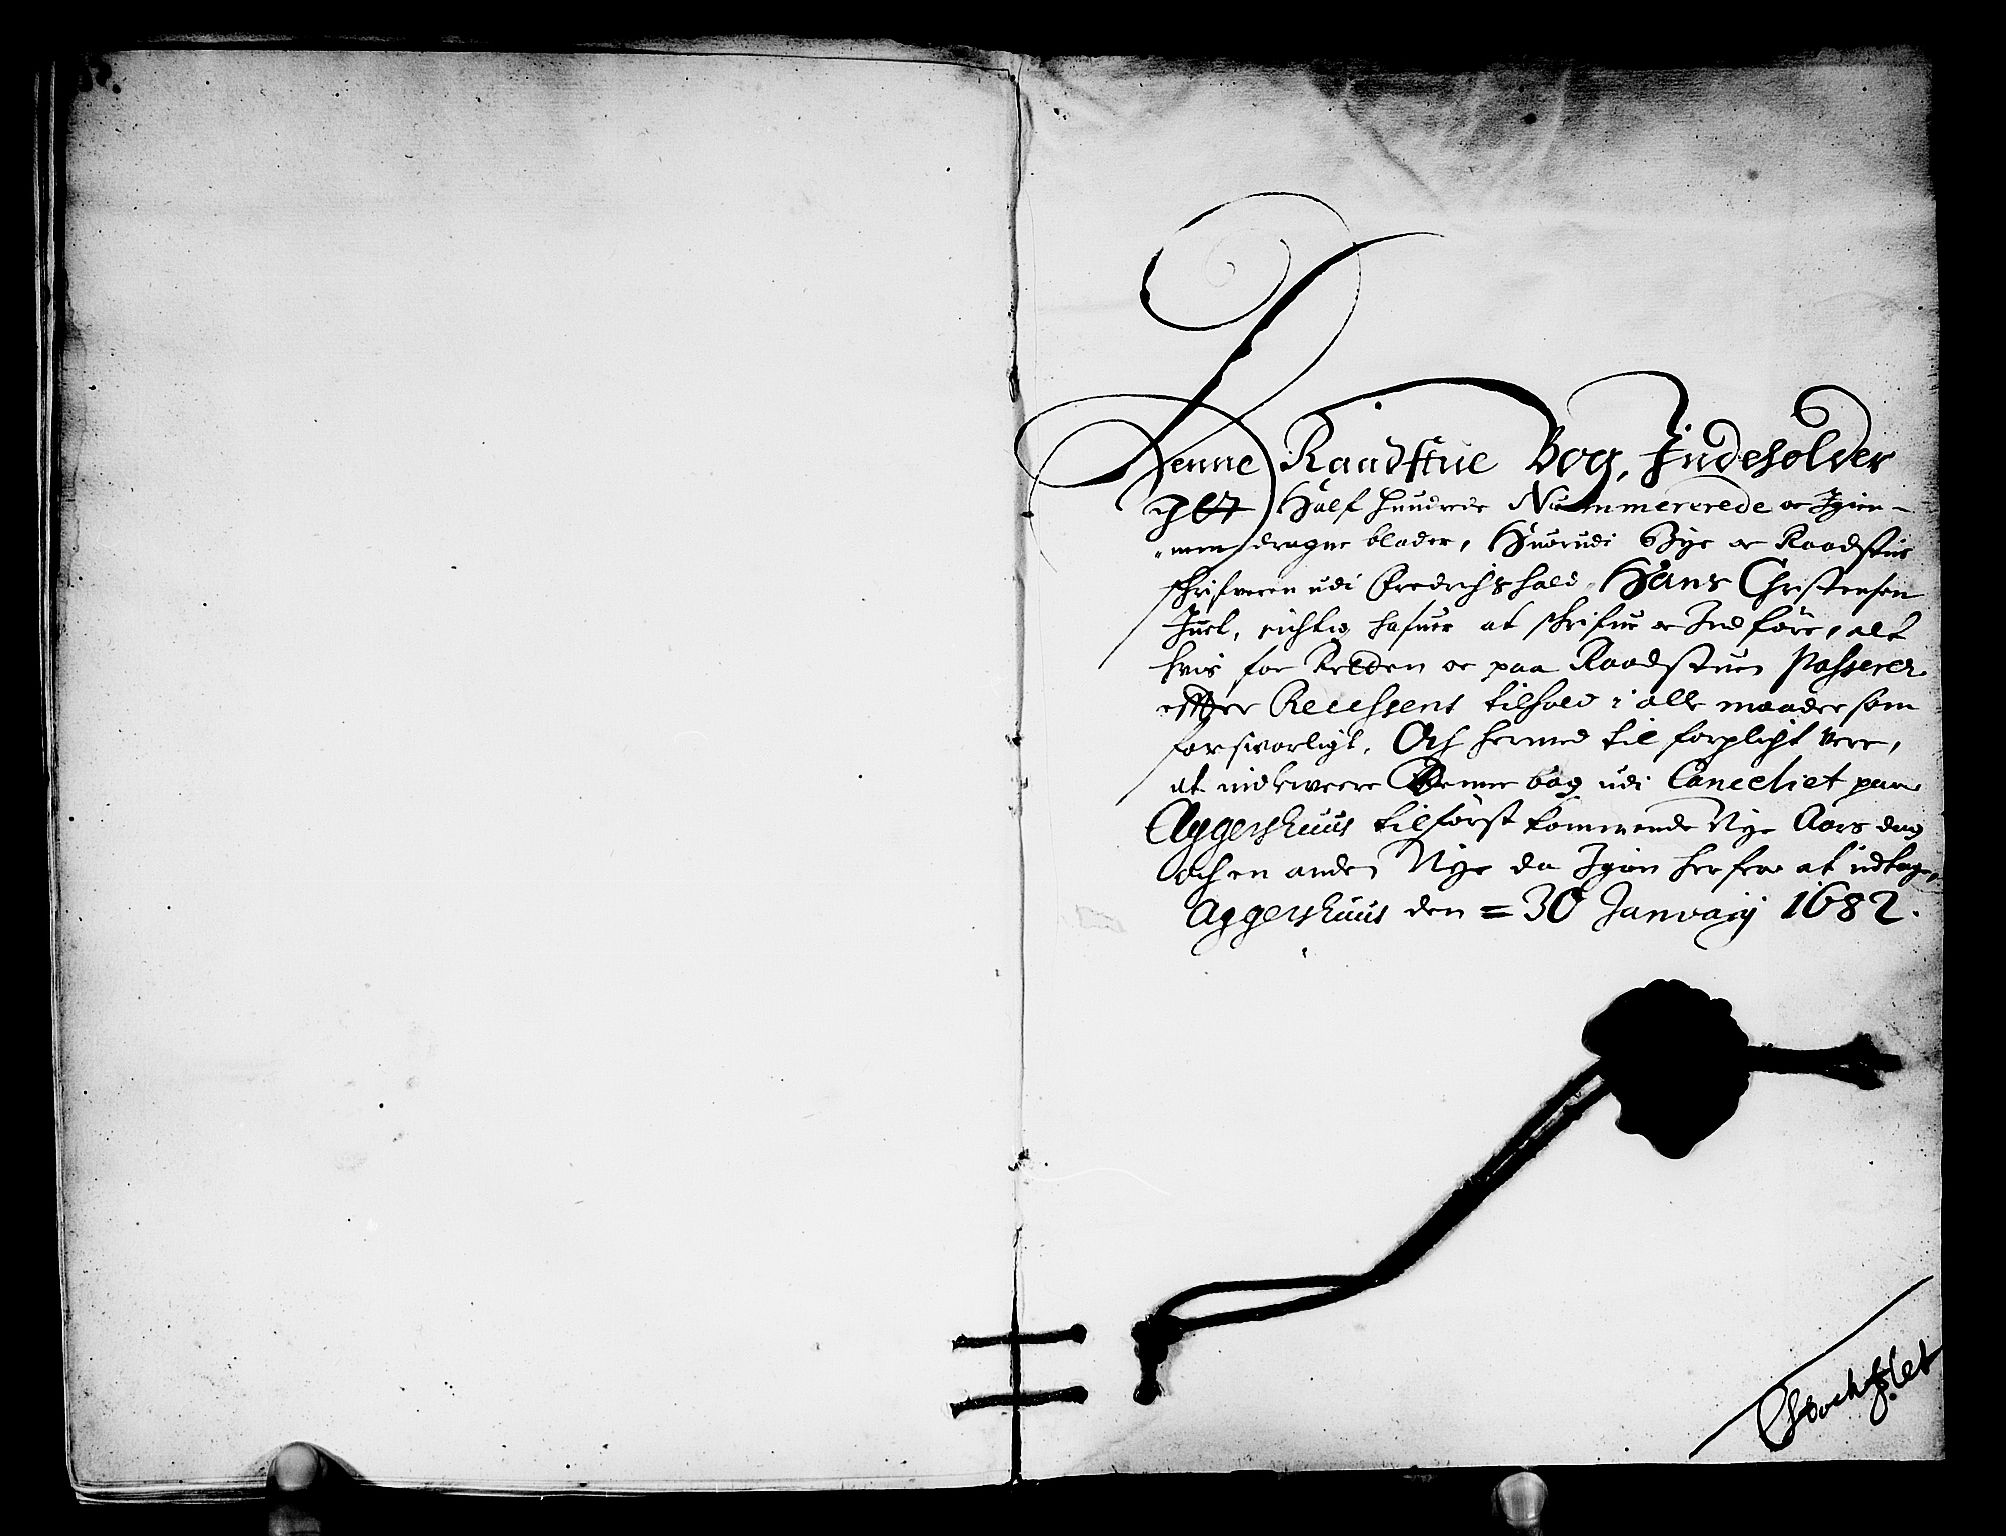 Denne Raadstue Bog, Indeholder
it Half hundrede Nummererede oc Igien-
nem dragne blader, Huorudi Bye oc Raadstue
schrifveren udi Fredrichshald, Hans Christensen
Juel, richtig hafuer at schrifue oc Indføre, alt
hvis for Retten oc paa Raadstuen Passerer
effter Recessens tilhold i alle maader som
forsvarligt, Och hermed til forpligt vere,
at indlevere Denne bog udi Canceliet paa
Aggershuus tilførst kommende Nye Aars dag
och en anden Nye da Igien herfra at udtage,
Aggershuus den = 30 January 1682.